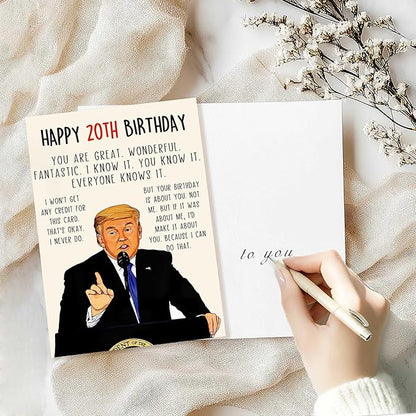 HAPPY 20TH BIRTHDAY
YOU ARE GREAT. WONDERFUL.
FANTASTIC. I KNOW IT. YOU KNOW IT.
EVERYONE KNOWS IT.
I WON'T GET
ANY CREDIT FOR
THIS CARD.
THAT'S OKAY.
I NEVER DO.
BUT YOUR BIRTHDAY
IS ABOUT YOU. NOT
ME. BUT IF IT WAS
ABOUT ME, I'D
MAKE IT ABOUT
YOU. BECAUSE I CAN
DO THAT.
ENT OF THE
to you